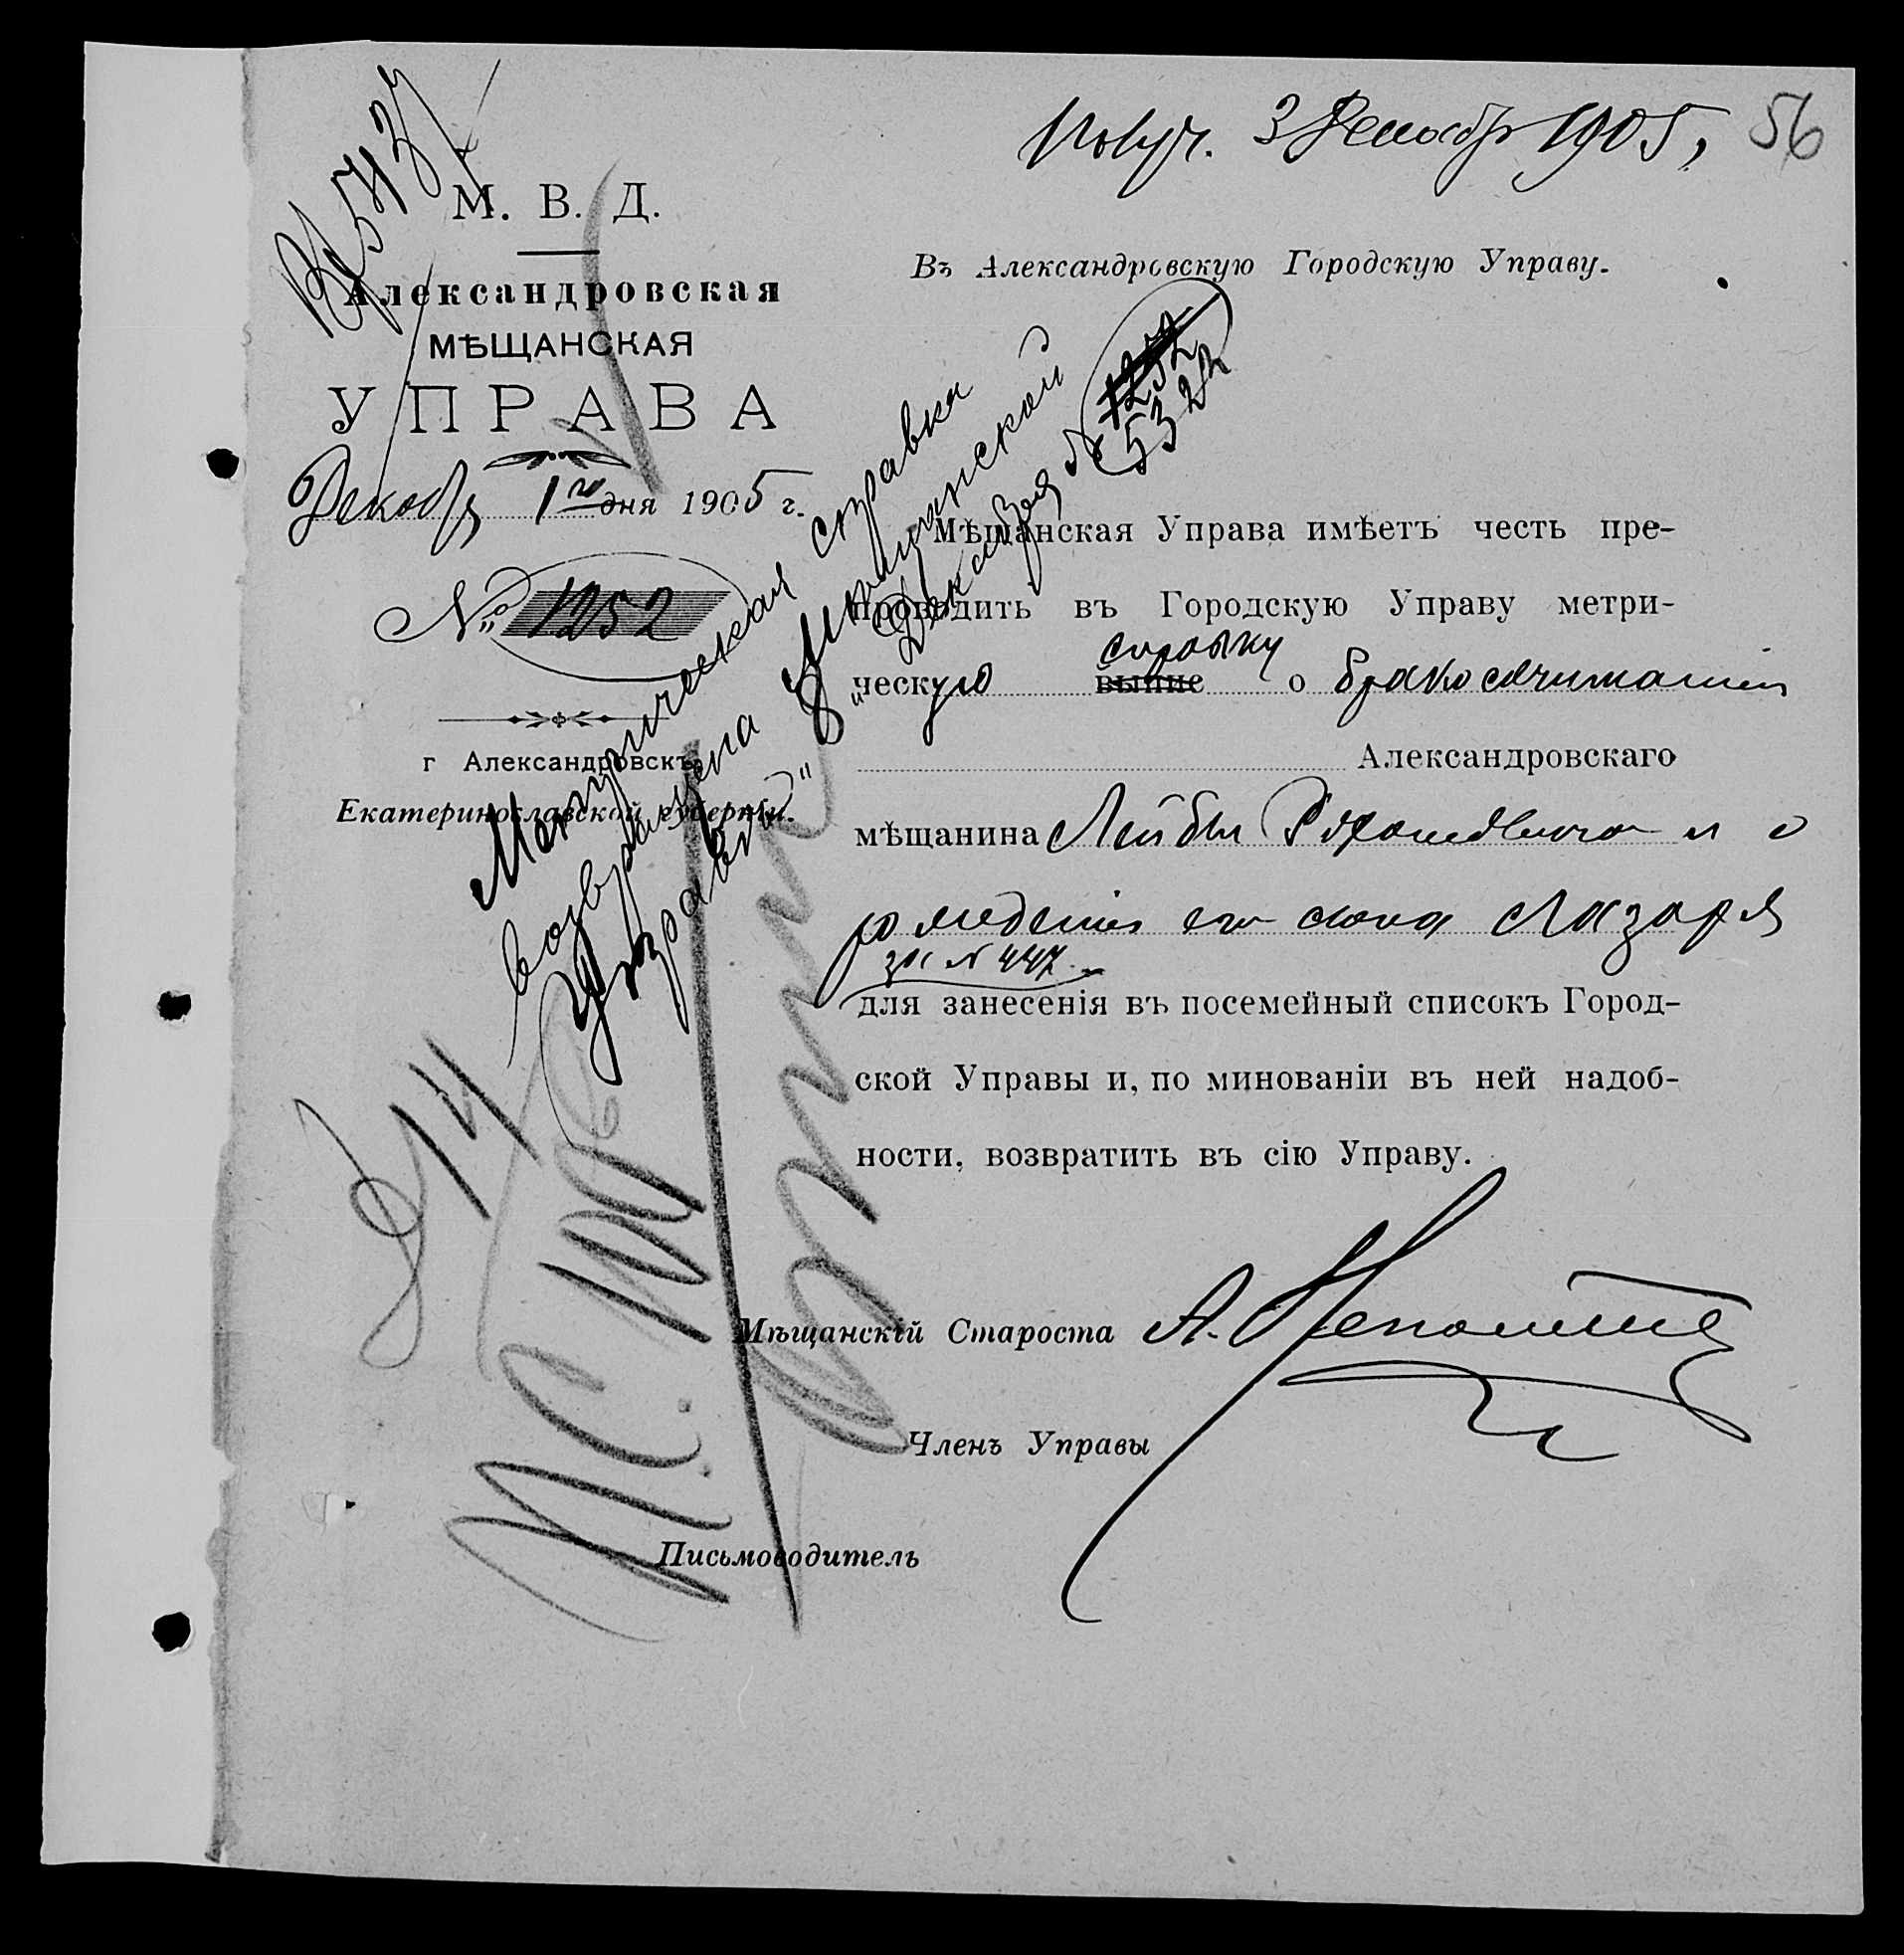 Получ. 3 Декабр 1905,
56
Вх 5437
М. В. Д.
Александровская
МѢЩАНСКАЯ
УПРАВА
Декабря 1го дня 1905 г.
№ 1252
г Александровскъ,
Екатеринославской губерніи.
Въ Александровскую Городскую Управу.
Мѣщанская Управа имѣетъ честь пре-
проводить въ Городскую Управу метри-
справку
ческую выпис о бракосочитаніи
Александровскаго
мѣщанина Лейбы и о
рожденіи его сына Лазаря
за № 447
для занесенія въ посемейный списокъ Город-
ской Управы и, по минованіи въ ней надоб-
ности, возвратить въ сію Управу.
Мѣщанскій Староста А.
Членъ Управы
Письмоводитель
Метрическая справка
возвращена Мещанской
Управѣ" "8" Декабря за № 1252
5322